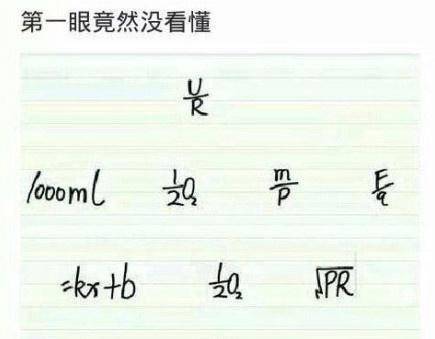 第一眼竟然没看懂
U/R
1000ml ½O₂ m/ρ F/q
=kx+b ½O₂ √PR